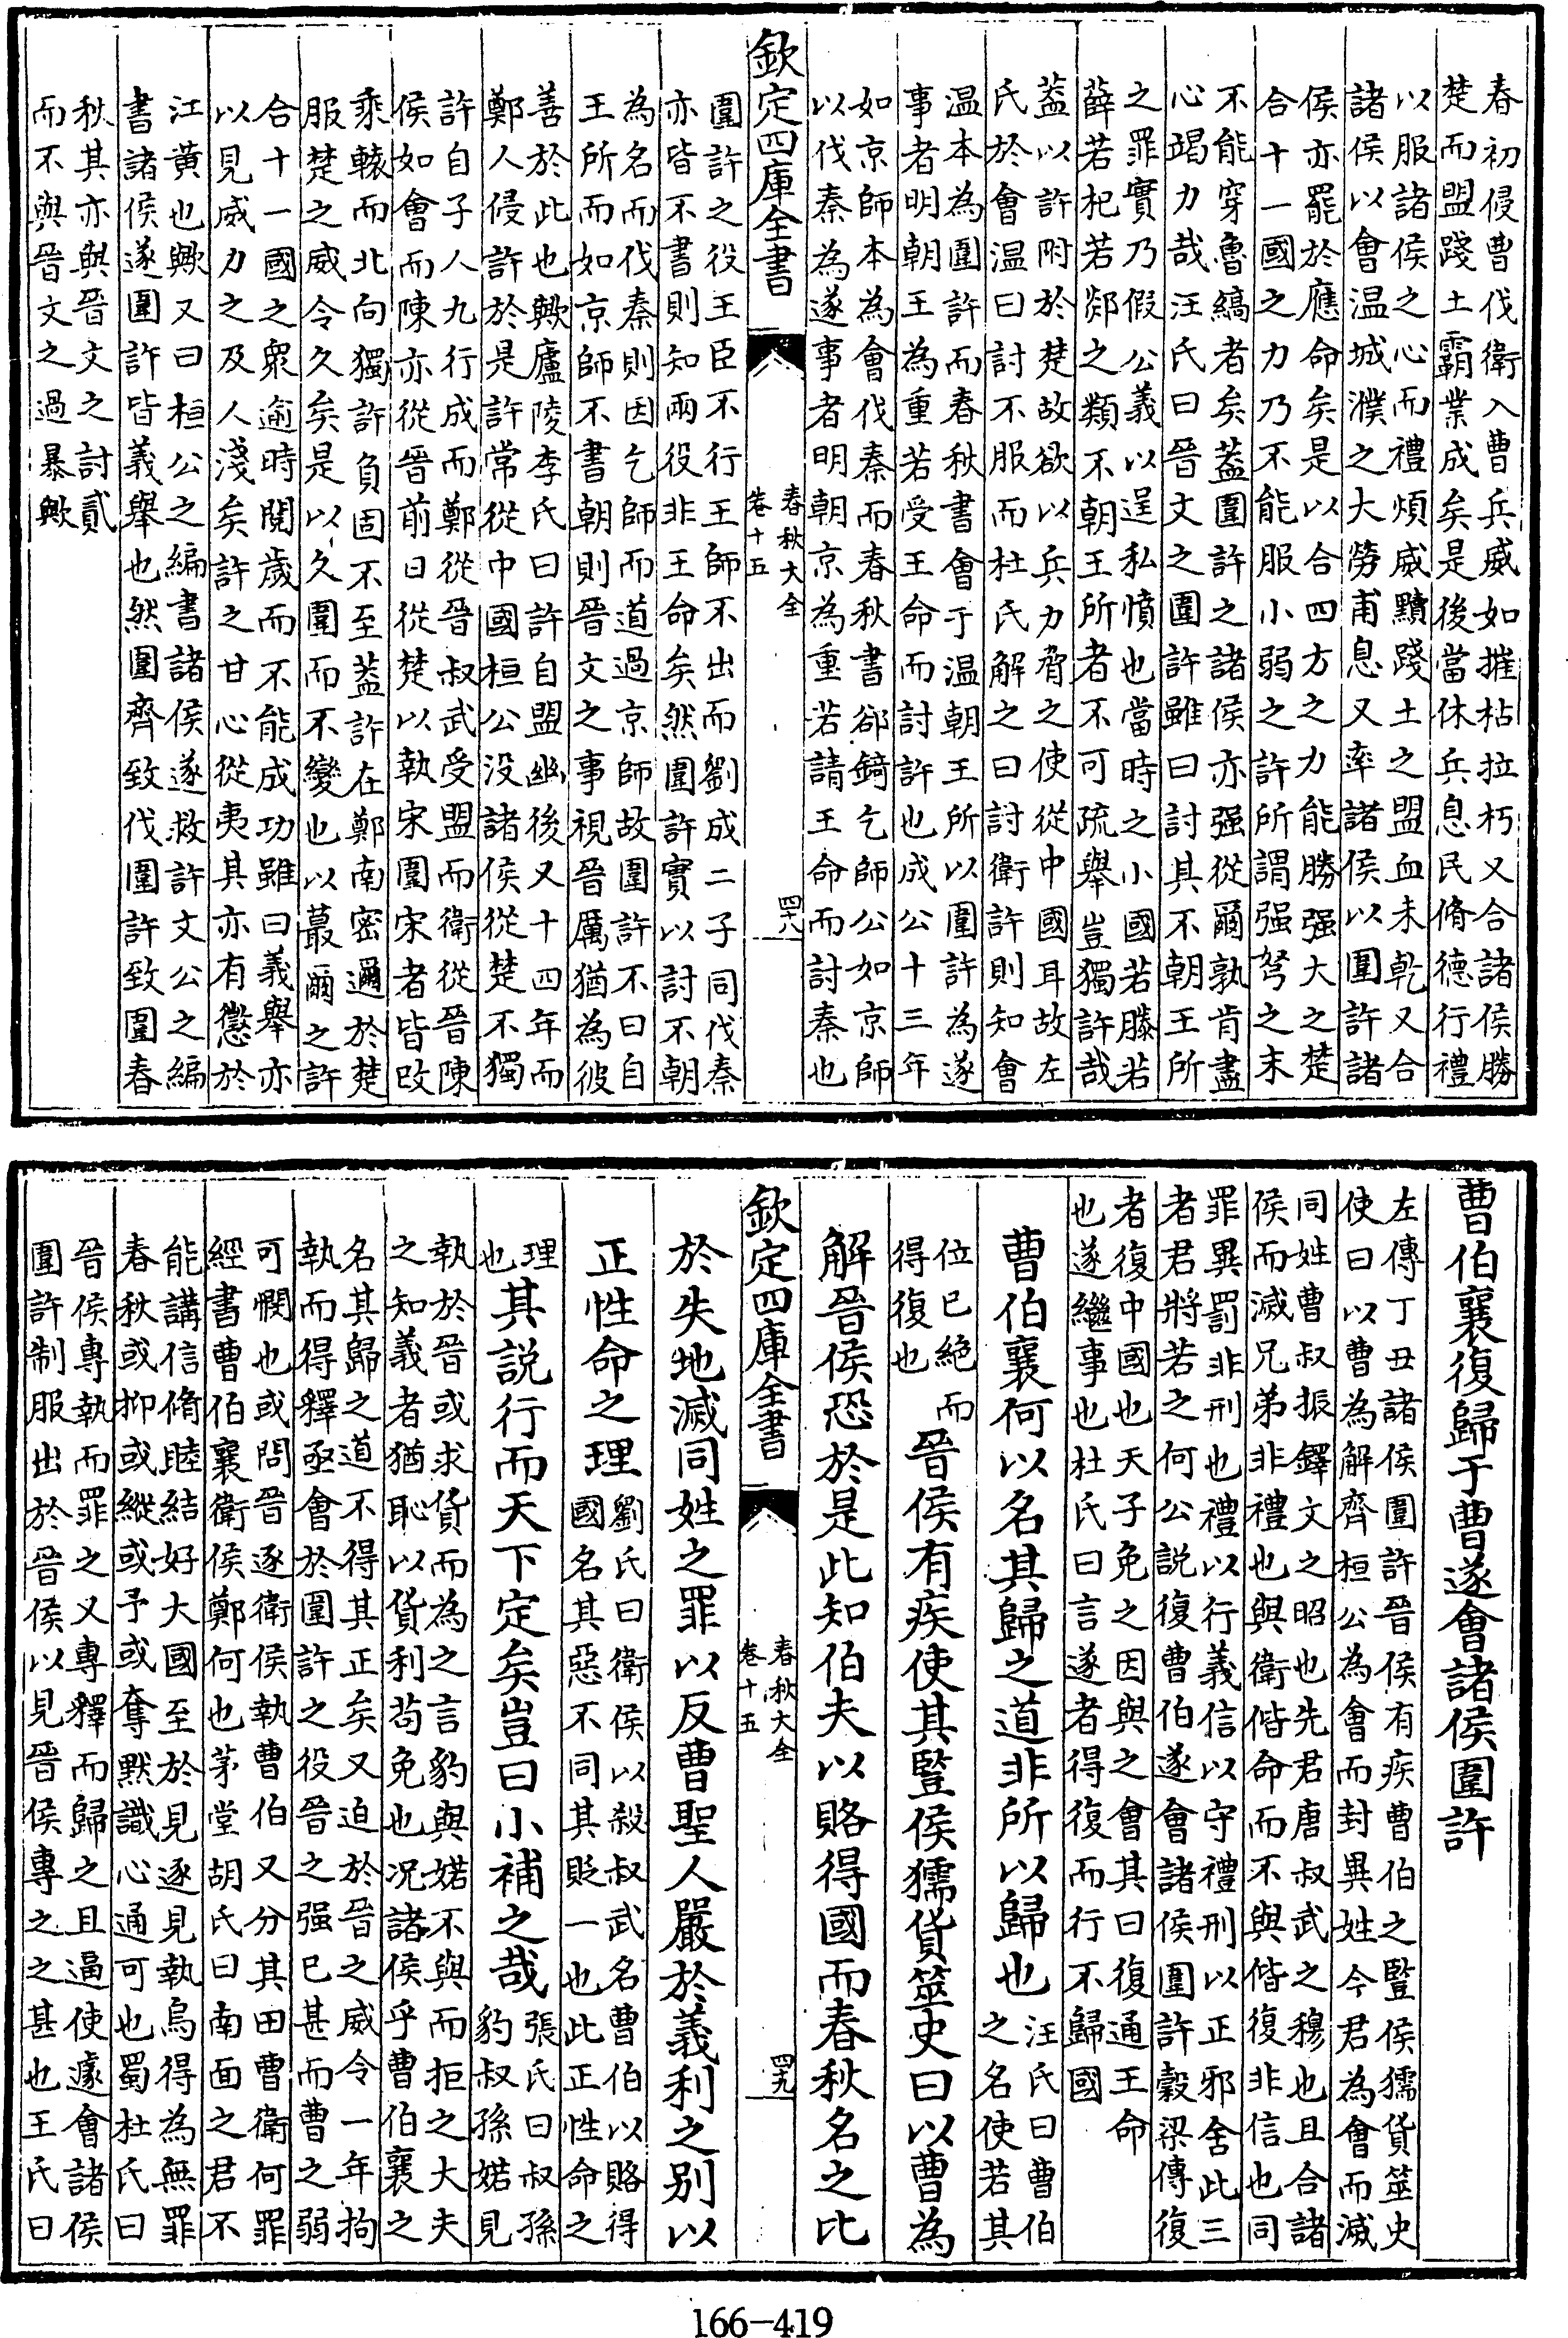 春初侵曹伐衛入曹兵威如摧枯拉朽又合諸侯勝
楚而盟踐土霸業成矣是後當休兵息民脩德行禮
以服諸侯之心而禮煩威黷踐土之盟血未乾又合
諸侯以會温城濮之大勞甫息又率諸侯以圍許諸
侯亦罷於應命矣是以合四方之力能勝强大之楚
合十一國之力乃不能服小弱之許所謂强弩之末
不能穿魯縞者矣葢圍許之諸侯亦强從爾孰肯盡
心竭力哉汪氏曰晉文之圍許雖曰討其不朝王所
之罪實乃假公義以逞私憤也當時之小國若滕若
薛若杞若郯之類不朝王所者不可疏舉豈獨許哉
葢以許附於楚故欲以兵力脅之使從中國耳故左
氏於會温曰討不服而杜氏解之曰討衛許則知會
温本為圍許而春秋書會于温朝王所以圍許為遂
事者明朝王為重若受王命而討許也成公十三年
如京師本為會伐秦而春秋書郤錡乞師公如京師
以伐秦為遂事者明朝京為重若請王命而討秦也
欽定四庫全書
春秋大全
卷十五
四十八
圍許之役王臣不行王師不出而劉成二子同伐秦
亦皆不書則知兩役非王命矣然圍許實以討不朝
為名而伐秦則因乞師而道過京師故圍許不曰自
王所而如京師不書朝則晉文之事視晉厲猶為彼
善於此也歟廬陵李氏曰許自盟幽後又十四年而
鄭人侵許於是許常從中國桓公没諸侯從楚不獨
許自子人九行成而鄭從晉叔武受盟而衛從晉陳
侯如會而陳亦從晉前日從楚以執宋圍宋者皆改
乘轅而北向獨許負固不至葢許在鄭南密邇於楚
服楚之威令久矣是以久圍而不變也以蕞爾之許
合十一國之衆逾時閱歲而不能成功雖曰義舉亦
以見威力之及人淺矣許之甘心從夷其亦有懲於
江黄也歟又曰桓公之編書諸侯遂救許文公之編
書諸侯遂圍許皆義舉也然圍齊致伐圍許致圍春
秋其亦與晉文之討貳
而不與晉文之過暴歟
曹伯襄復歸于曹遂會諸侯圍許
左傳丁丑諸侯圍許晉侯有疾曹伯之豎侯獳貨筮史
使曰以曹為解齊桓公為會而封異姓今君為會而滅
同姓曹叔振鐸文之昭也先君唐叔武之穆也且合諸
侯而滅兄弟非禮也與衛偕命而不與偕復非信也同
罪異罰非刑也禮以行義信以守禮刑以正邪舍此三
者君將若之何公說復曹伯遂會諸侯圍許穀梁傳復
者復中國也天子免之因與之會其曰復通王命
也遂繼事也杜氏曰言遂者得復而行不歸國
曹伯襄何以名其歸之道非所以歸也汪氏曰曹伯
之名使若其
位已絶而
得復也晉侯有疾使其豎侯獳貨筮史曰以曹為
解晉侯恐於是此知伯夫以賂得國而春秋名之比
欽定四庫全書
春秋大全
卷十五
四十九
於失地滅同姓之罪以反曹聖人嚴於義利之别以
正性命之理劉氏曰衛侯以殺叔武名曹伯以賂得
國名其惡不同其貶一也此正性命之
理
也其説行而天下定矣豈曰小補之哉張氏曰叔孫
豹叔孫婼見
執於晉或求貨而為之言豹與婼不與而拒之大夫
之知義者猶恥以貨利苟免也况諸侯乎曹伯襄之
名其歸之道不得其正矣又迫於晉之威令一年拘
執而得釋亟會於圍許之役晉之强已甚而曹之弱
可憫也或問晉逐衛侯執曹伯又分其田曹衛何罪
經書曹伯襄衛侯鄭何也茅堂胡氏曰南面之君不
能講信脩睦結好大國至於見逐見執烏得為無罪
春秋或抑或縱或予或奪默識心通可也蜀杜氏曰
晉侯專執而罪之又專釋而歸之且逼使遽會諸侯
圍許制服出於晉侯以見晉侯專之之甚也王氏曰
166-419